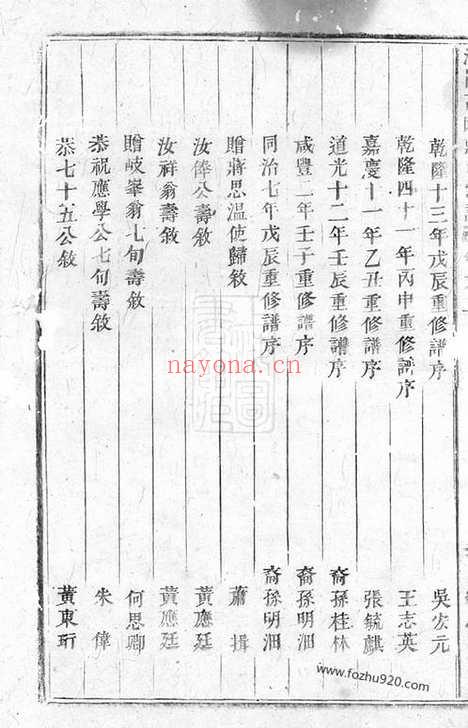 乾隆十三年戊辰重修譜序 吳宏元
乾隆四十一年丙申重修譜序 王志英
嘉慶十一年乙丑重修譜序 張毓麒
道光十二年壬辰重修譜序 裔孫桂林
咸豐二年壬子重修譜序 裔孫明沺
同治七年戊辰重修譜序 裔孫明沺
贈蔣思溫使歸敘 蕭揖
汝倬公壽敘 黃應廷
汝祥翁壽敘 黃應廷
贈岐峯翁七旬壽敘 何思卿
恭祝應學公七旬壽敘 朱偉
恭七十五公敘 黃東珩
nayona.cn
www.fozhu920.com